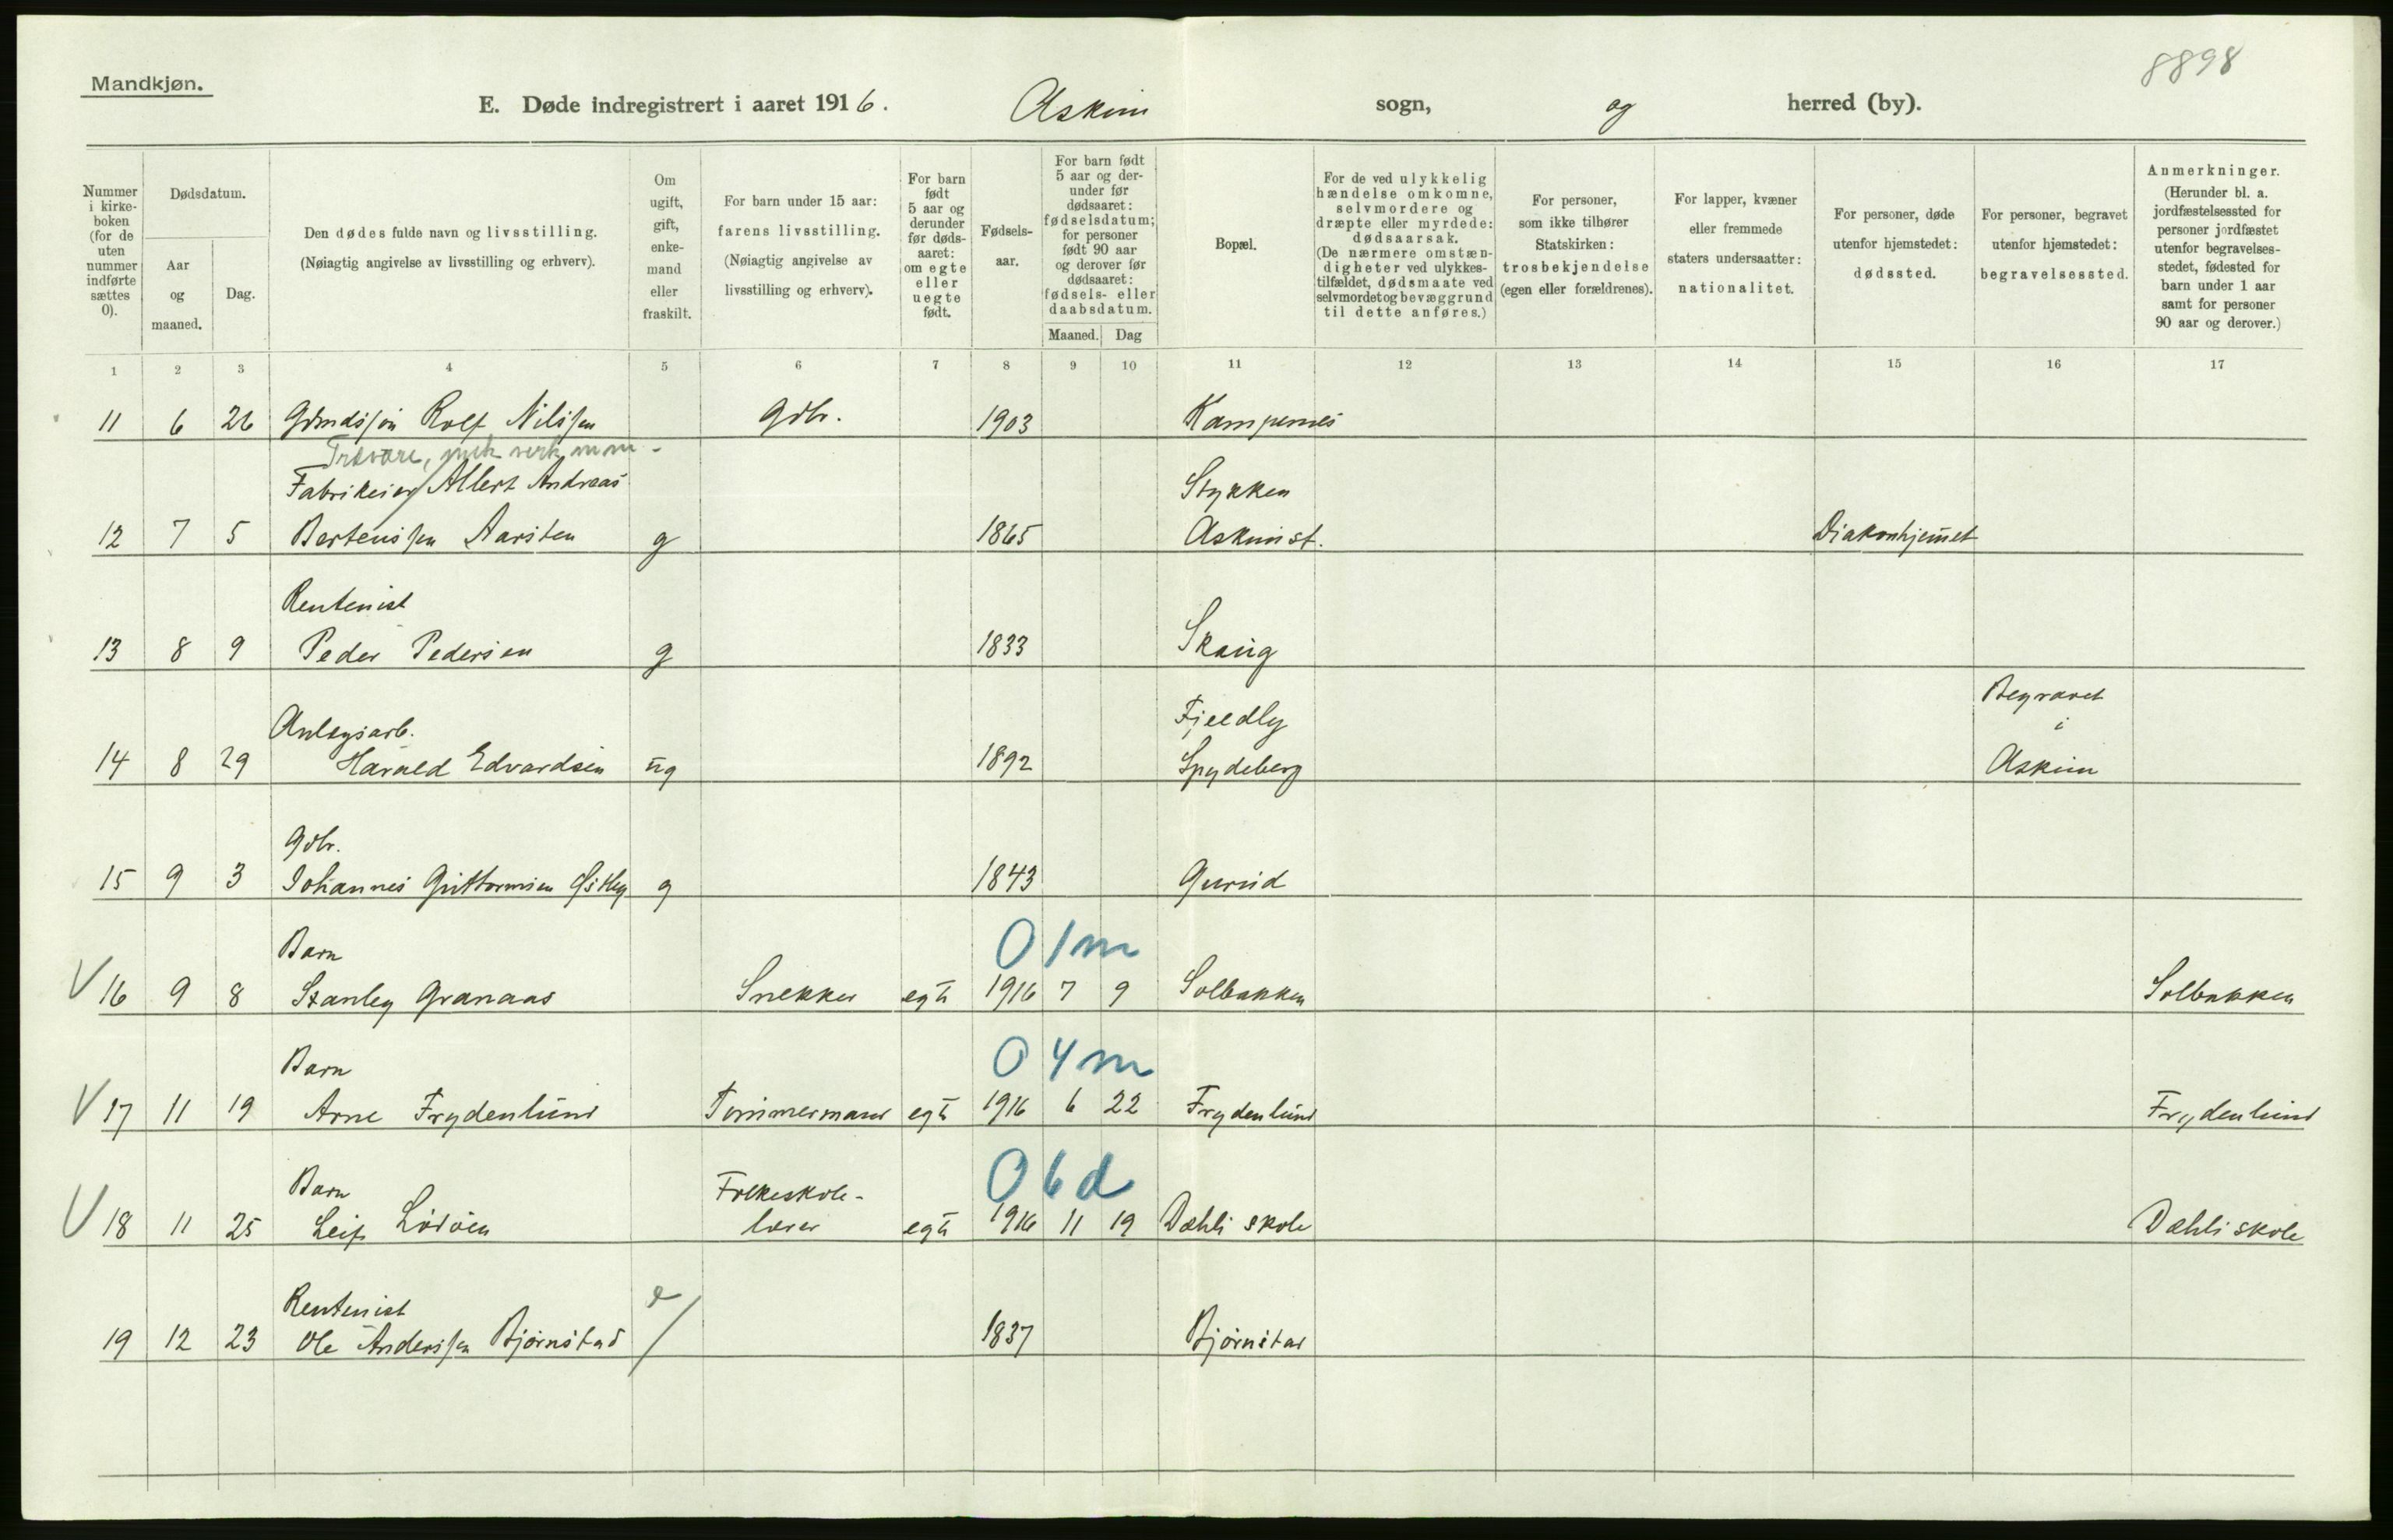 8898
Mandkjøn.
E. Døde indregistrert i aaret 1916. Askim sogn, og herred (by).
Nummer i kirkeboken (for de uten nummer indførte sættes 0).
Dødsdatum.
Aar og maaned.
Dag.
Den dødes fulde navn og livsstilling.
(Nøiagtig angivelse av livsstilling og erhverv).
Om ugift, gift, enkemand eller fraskilt.
For barn under 15 aar: farens livsstilling. (Nøiagtig angivelse av livsstilling og erhverv).
For barn født 5 aar og derunder før dødsaaret: om egte eller uegte født.
Fødselsaar.
For barn født 5 aar og derunder før dødsaaret: fødselsdatum; for personer født 90 aar og derover før dødsaaret: fødsels- eller daabsdatum.
Maaned. Dag
Bopæl.
For de ved ulykkelig hændelse omkomne, selvmordere og dræpte eller myrdede: dødsaarsak. (De nærmere omstændigheter ved ulykkestilfældet, dødsmaate ved selvmordet og bevæggrund til dette anføres.)
For personer, som ikke tilhører Statskirken: trosbekjendelse (egen eller forældrenes).
For lapper, kvæner eller fremmede staters undersaatter: nationalitet.
For personer, døde utenfor hjemstedet: dødssted.
For personer, begravet utenfor hjemstedet: begravelsessted.
Anmerkninger. (Herunder bl. a. jordfæstelsessted for personer jordfæstet utenfor begravelsesstedet, fødested for barn under 1 aar samt for personer 90 aar og derover.)
1 2 3 4 5 6 7 8 9 10 11 12 13 14 15 16 17
11 6 26 Rolf Nilssen Gdbr. 1903 Kampenes
Trævare, mek verk m m
Fabrikeier Albert Andreas Stykken
12 7 5 Bertenssen Aarsten g 1865 Askim st. Diakonhjemmet
Rentenist
13 8 9 Peder Pedersen g 1833 Skaug
Begravet
Anlegsarb. Fjeldly i
14 8 29 Harald Edvardsen ug 1892 Spydeberg Askim
Gdbr.
15 9 3 Johannes Guttormsen g 1843
0 1 m
Barn
V 16 9 8 Stanley Granaas Snekker egte 1916 7 9 Solbakken Solbakken
0 4 m
Barn
V 17 11 19 Arne Frydenlund Tømmermand egte 1916 6 22 Frydenlund Frydenlund
0 6 d
Barn Folkeskole-
V 18 11 25 Leif Lødøen lærer egte 1916 11 19 Dæhli skole Dæhli skole
Rentenist e
19 12 23 Ole Anderssen Bjørnstad / 1837 Bjørnstad